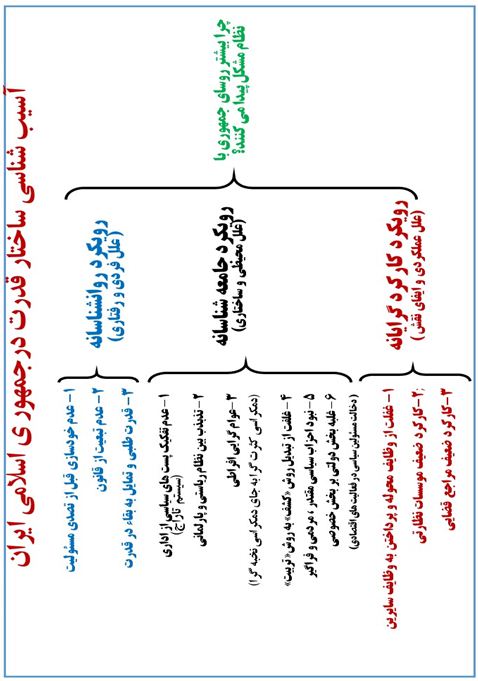 آسیب شناسی ساختار قدرت درجمهوری اسلامی ایران
چرا بیشتر روسای جمهوری با
نظام مشکل پیدا می کنند؟
رویکرد روانشناسانه
(علل فردی و رفتاری)
۱- عدم خودسازی قبل از تصدی مسئولیت
۲- عدم تبعیت از قانون
۳- قدرت طلبی و تمایل به بقاء در قدرت
رویکرد جامعه شناسانه
(علل محیطی و ساختاری)
۱- عدم تفکیک پست های سیاسی از اداری
(سیستم تاراج)
۲- تذبذب بین نظام ریاستی و پارلمانی
۳- عوام گرایی افراطی
(دمکراسی کثرت گرا به جای دمکراسی نخبه گرا)
۴- غفلت از تبدیل روش «کشف» به روش «تربیت»
۵- نبود احزاب سیاسی مقتدر، مردمی و فراگیر
۶- غلبه بخش دولتی بر بخش خصوصی
(دخالت مسئولین سیاسی در فعالیت های اقتصادی)
رویکرد کارکرد گرایانه
(علل عملکردی و ایفای نقش)
۱- غفلت از وظایف محوله و پرداختن به وظایف سایرین
۲- کارکرد ضعیف موسسات نظارتی
۳- کارکرد ضعیف مراجع قضایی